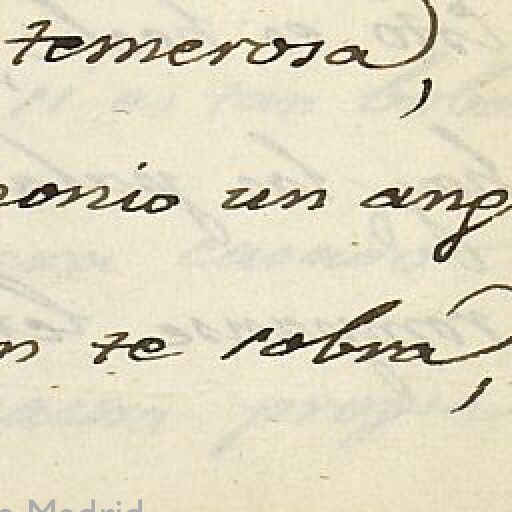 temerosa,
onio un ang
n te sobra,
Madrid